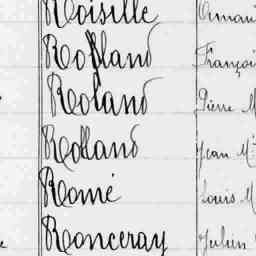 Roisille Aman
Rolland François
Roland Pierre M
Rolland Jean M
Romé Louis M
Ronceray Julien